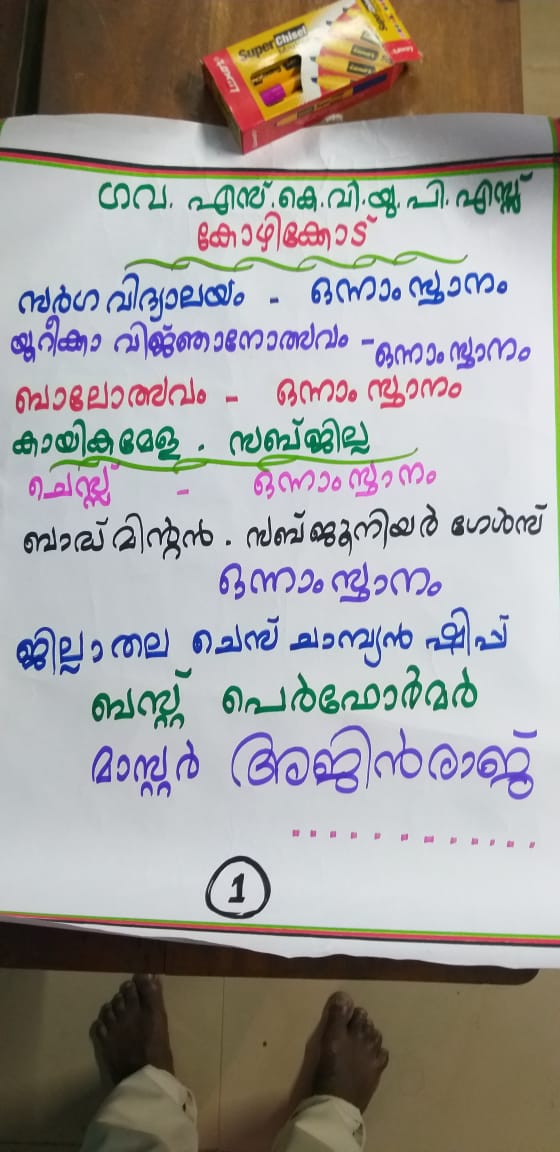 Super Chisel
Luxor
ഗവ. എസ്.കെ.വി.യു.പി.എസ്സ്
കോഴിക്കോട്
സർഗവിദ്യാലയം - ഒന്നാംസ്ഥാനം
യുറീക്കാ വിജ്ഞാനോത്സവം - ഒന്നാംസ്ഥാനം
ബാലോത്സവം - ഒന്നാം സ്ഥാനം
കായികമേള . സബ്ജില്ല
ചെസ്സ് - ഒന്നാംസ്ഥാനം
ബാഡ്മിന്റൻ . സബ്ജൂനിയർ ഗേൾസ്
ഒന്നാംസ്ഥാനം
ജില്ലാതല ചെസ് ചാമ്പ്യൻഷിപ്പ്
ബസ്റ്റ് പെർഫോർമർ
മാസ്റ്റർ അജിൻരാജ്
.............
1